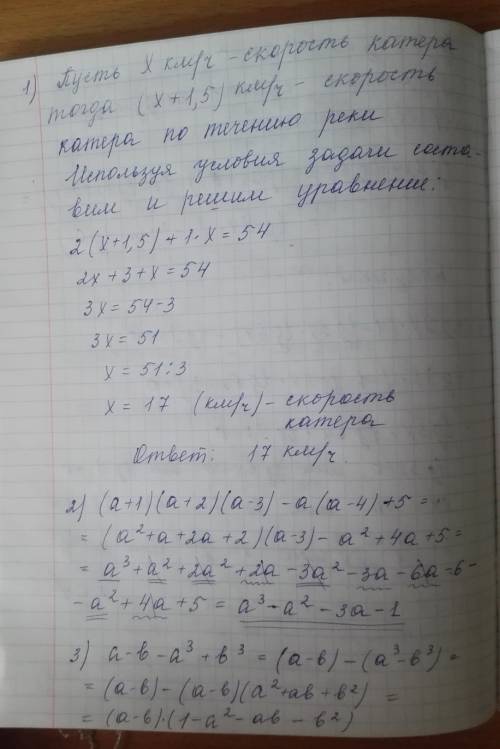 1) Пусть X км/ч - скорость катера
тогда (x+1,5) км/ч - скорость
катера по течению реки
Используя условия задачи соста-
вим и решим уравнение:
2(x+1,5)+1·x=54
2x+3+x=54
3x=54-3
3x=51
x=51:3
x=17 (км/ч) - скорость
катера
Ответ: 17 км/ч.
2) (a+1)(a+2)(a-3)-a(a-4)+5=
=(a²+a+2a+2)(a-3)-a²+4a+5=
=a³+a²+2a²+2a-3a²-3a-6a-6-
-a²+4a+5=a³-a²-3a-1
3) a-b-a³+b³=(a-b)-(a³-b³)=
=(a-b)-(a-b)(a²+ab+b²)=
=(a-b)·(1-a²-ab-b²)